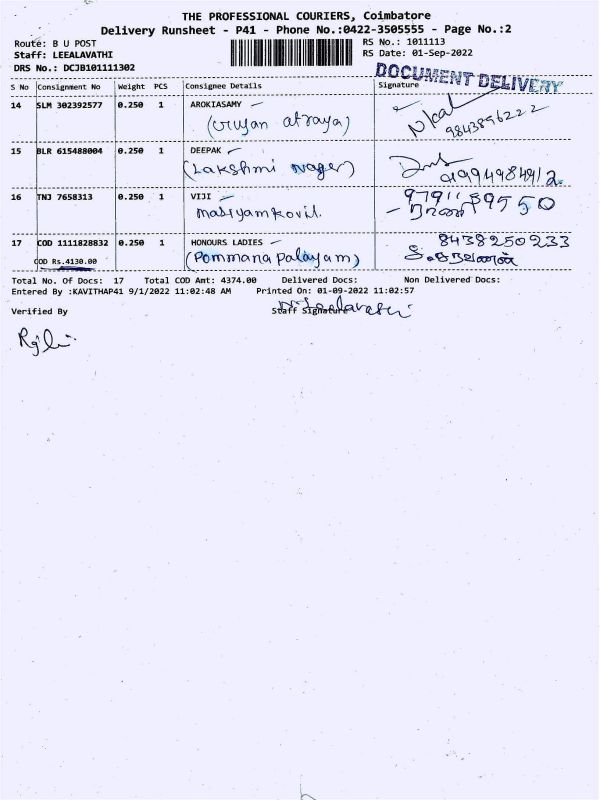 THE PROFESSIONAL COURIERS, Coimbatore
Delivery Runsheet - P41 - Phone No.:0422-3505555 - Page No.:2
Route: B U POST
Staff: LEEALAVATHI
DRS No.: DCJB101111302
RS No.: 1011113
RS Date: 01-Sep-2022
DOCUMENT DELIVERY
S No Consignment No Weight PCS Consignee Details Signature
14 SLM 302392577 0.250 1 AROKIASAMY
9843896222
15 BLR 615488004 0.250 1 DEEPAK
(Lakshmi nager)
9994984912
16 TNJ 7658313 0.250 1 VIJI
17 COD 1111828832 0.250 1 HONOURS LADIES 8438250233
COD Rs.4130.00 (Pommanapalayam)
Total No. Of Docs: 17 Total COD Amt: 4374.00 Delivered Docs: Non Delivered Docs:
Entered By :KAVITHAP41 9/1/2022 11:02:48 AM Printed On: 01-09-2022 11:02:57
Verified By Staff Signature